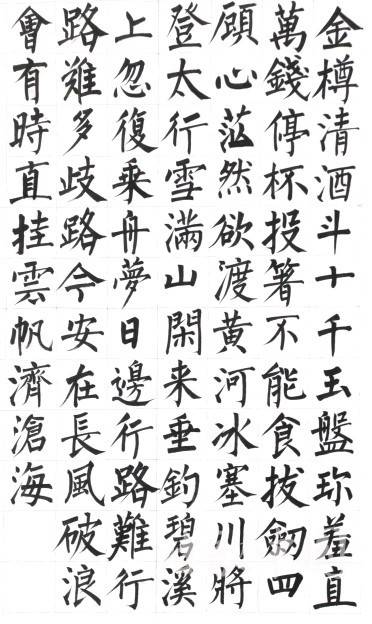 金樽清酒斗十千玉盤珎羞直
萬錢停杯投箸不能食拔劒四
顧心茫然欲渡黃河冰塞川將
登太行雪滿山閑来垂釣碧溪
上忽復乗舟夢日邊行路難行
路難多歧路今安在長風破浪
會有時直挂雲帆濟滄海